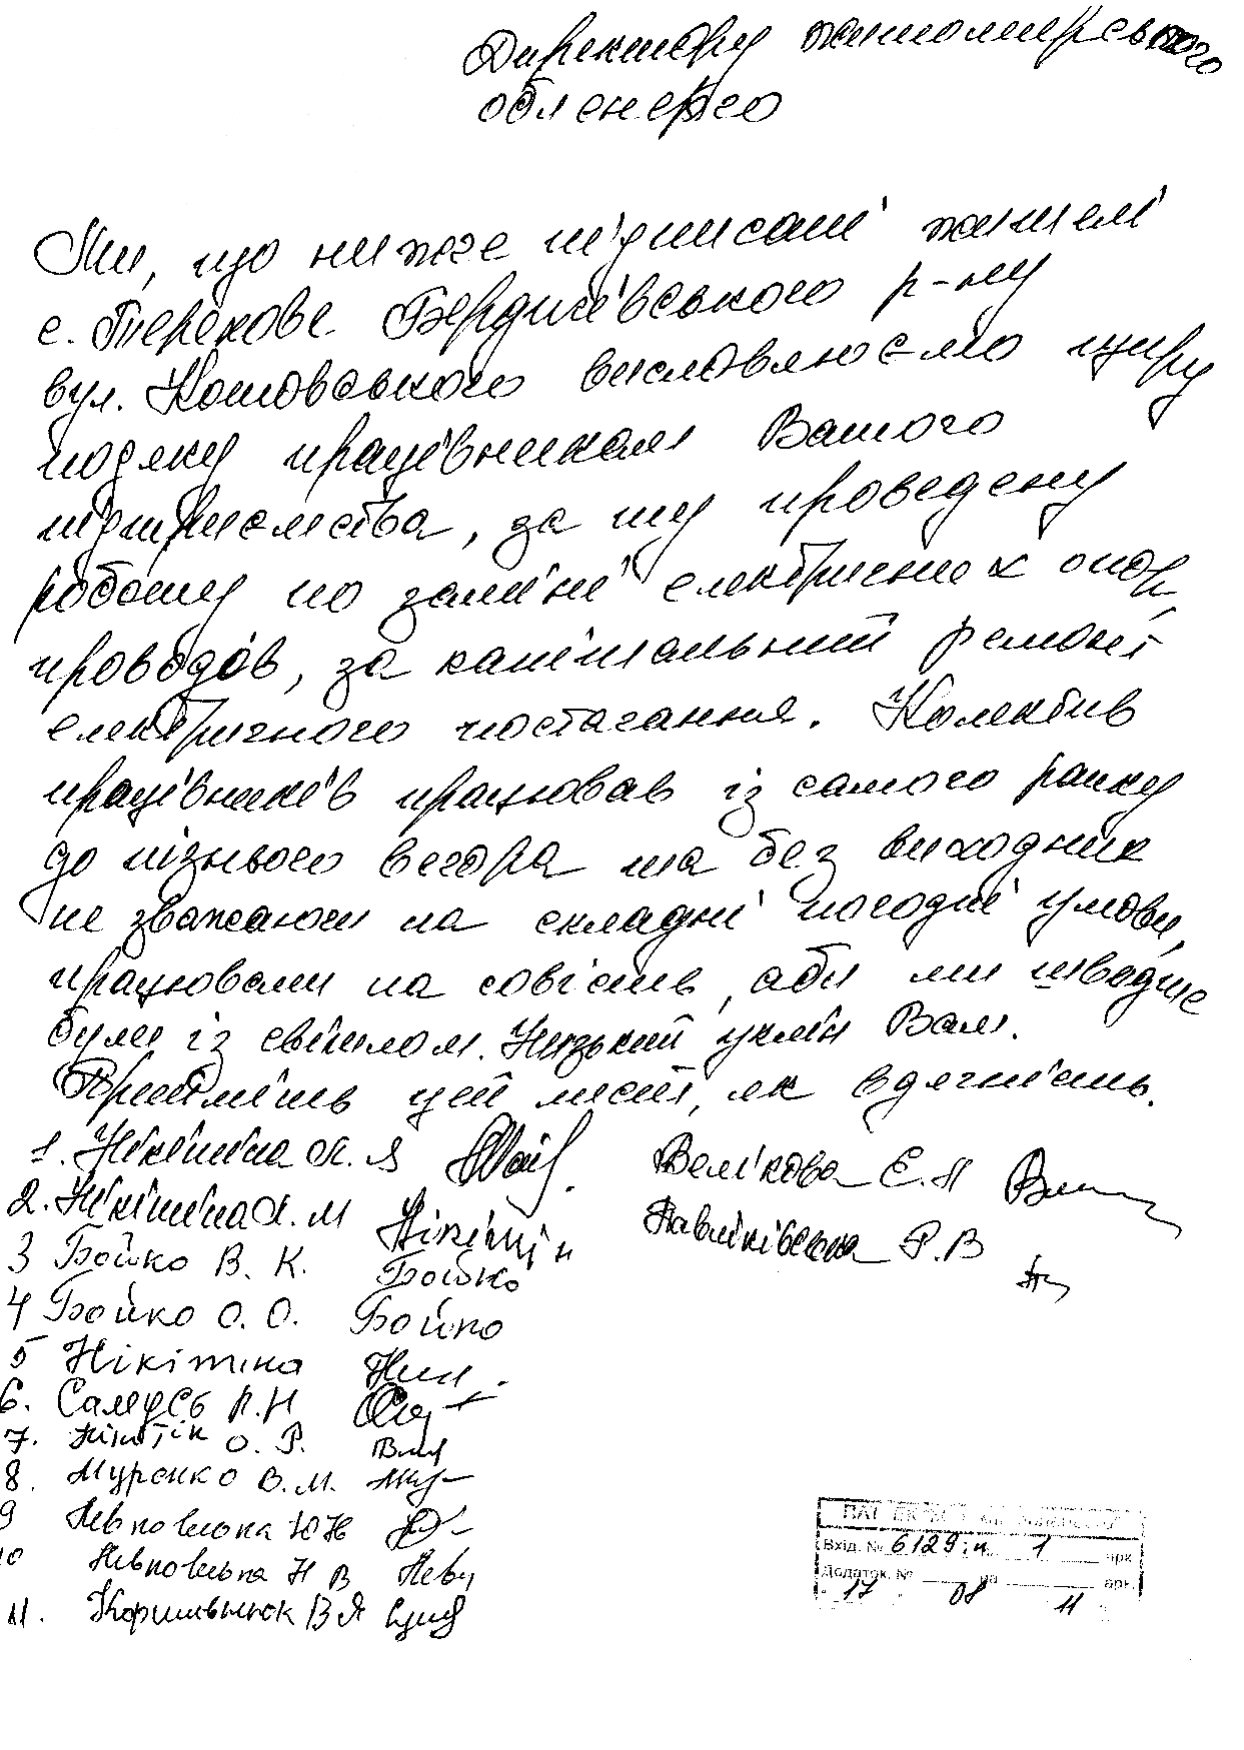 Директору житомирського
обленерго
Ми, що нижче підписані жителі
с. Терехове Бердичівського р-ну
вул. Котовського висловлюємо щиру
подяку працівникам Вашого
підприємства, за ту проведену
роботу по заміні електричних опор,
проводів, за капітальний ремонт
електричного постачання. Колектив
працівників працював із самого ранку
до пізнього вечора та без виходних
не зважаючи на складні погодні умови,
працювали на совість, аби ми швидше
були із світлом. Низький уклін Вам.
Прийміть цей лист, як вдячність.
1. Нікітіна А. Я Велікова Е. П
2. Нікітіна А. М Нікітін Павліківська Р. В
3 Бойко В. К. Бойко
4 Бойко О. О. Бойко
5 Нікітіна
6. Р. Н
7. О. Р.
8. Муренко В. М.
9 Ю Н
10 Н В
11. В Я
ПАТ
Вхід. № 6129 на 1 арк
Додаток. № на арк.
17 08 11